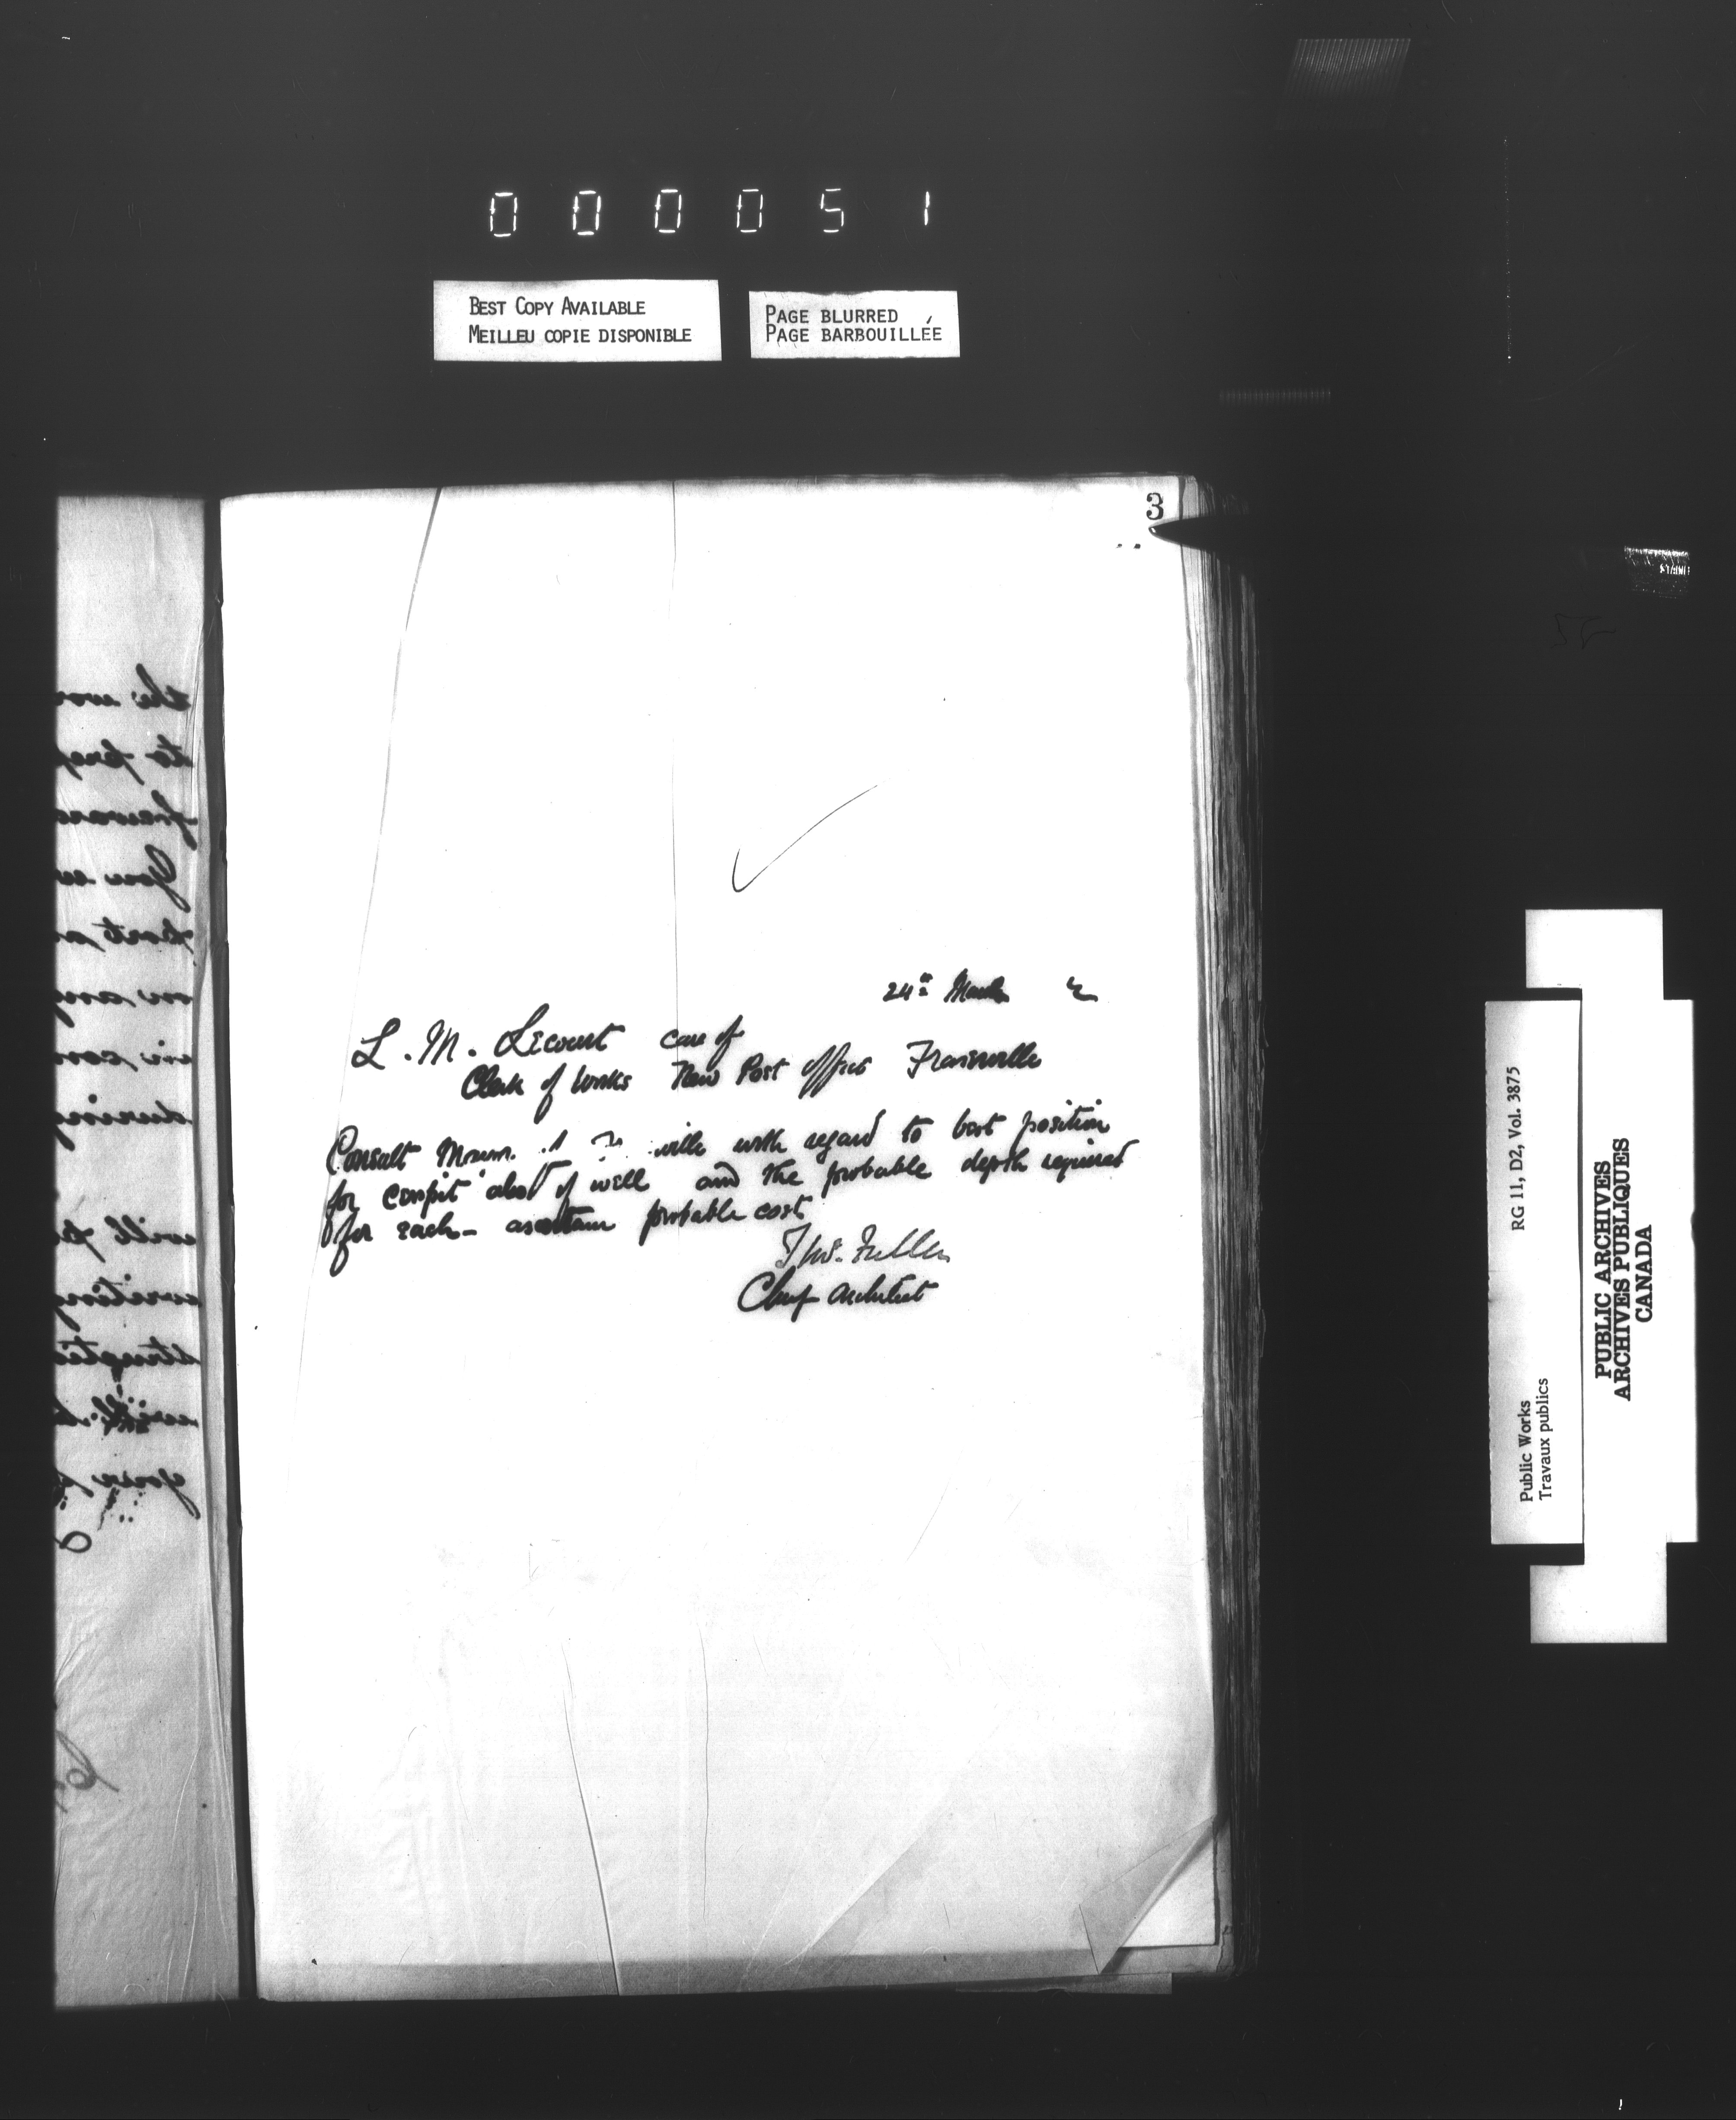 000051
BEST COPY AVAILABLE
MEILLEU COPIE DISPONIBLE
PAGE BLURRED
PAGE BARBOUILLÉE
3
24th March
L. M. Lecourt care of
Clerk of Works New Post Office Fraserville
Consult with regard to best position
for cesspit also of well and the probable depth required
for each - ascertain probable cost
Thos. Fuller
Chief Architect
RG 11, D2, Vol. 3875
Public Works
Travaux publics
PUBLIC ARCHIVES
ARCHIVES PUBLIQUES
CANADA